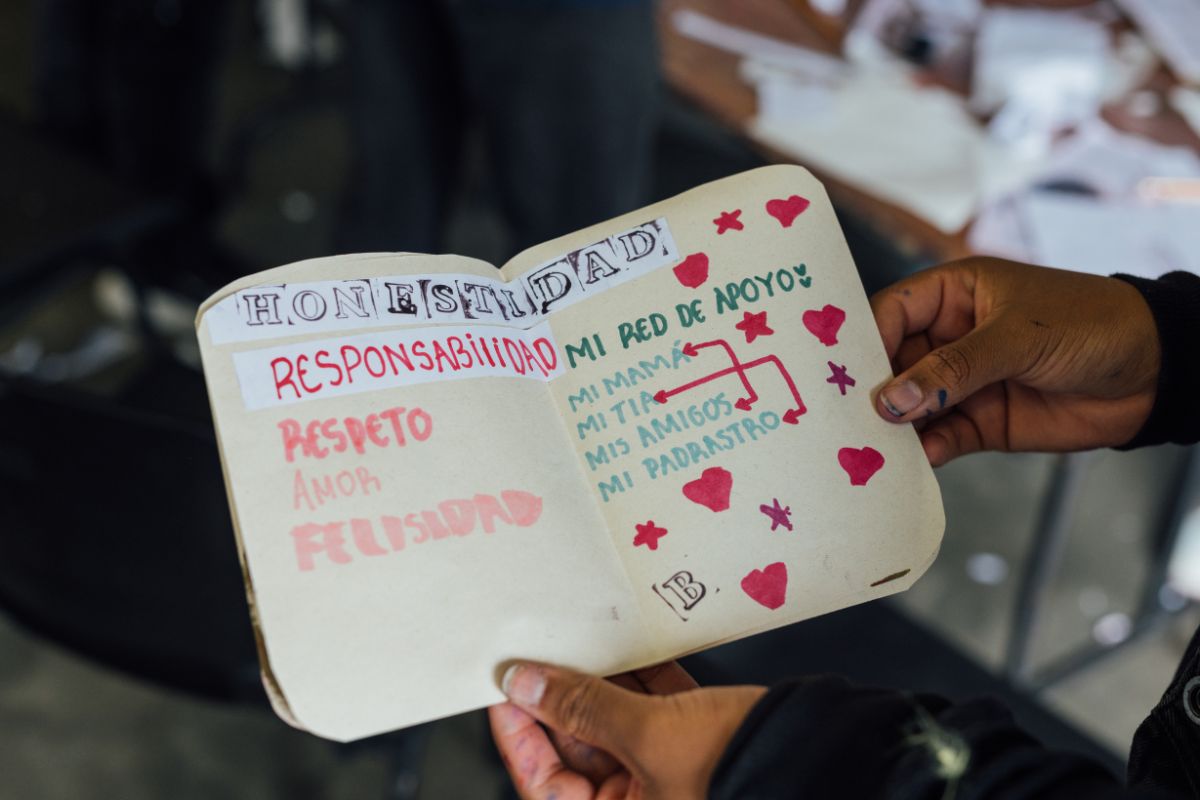 HONESTIDAD
RESPONSABiliDAD
RESPETO
AMOR
FELISIDAD
MI RED DE APOYO
MI MAMÁ
MI TIA
MIS AMIGOS
MI PADRASTRO
B